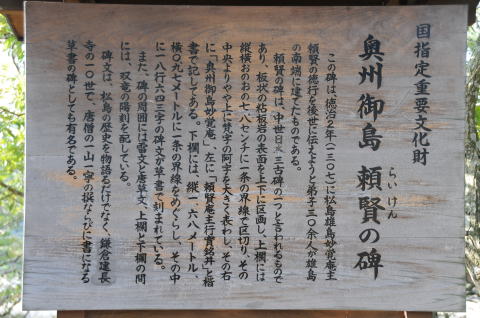 国指定重要文化財
奥州御島 頼賢の碑
らいけん
この碑は、徳治２年（一三〇七）に松島雄島妙覚庵主
頼賢の徳行を後世に伝えようと弟子三〇余人が雄島
の南端に建てたものである。
頼賢の碑は、中世日本三古碑の一つと言われるもので
あり、板状の粘板岩の表面を上下に区画し、上欄には
縦横おのおの七、八センチに一条の界線で区切り、その
中央よりやや上に梵字の阿字を大きく表わし、その右
に「奥州御島妙覚庵」、左に「頼賢庵主行實銘并」と楷
書で記してある。下欄には、縦一、六八メートル、
横〇、九七メートルに一条の界線をめぐらし、その中
に一八行六四三字の碑文が草書で刻まれている。
また、碑の周囲には雷文と唐草文、上欄と下欄の間
には、双竜の陽刻を配している。
碑文は、松島の歴史を物語るだけでなく、鎌倉建長
寺の一〇世で、唐僧の一山一寧の撰ならびに書になる
草書の碑としても有名である。